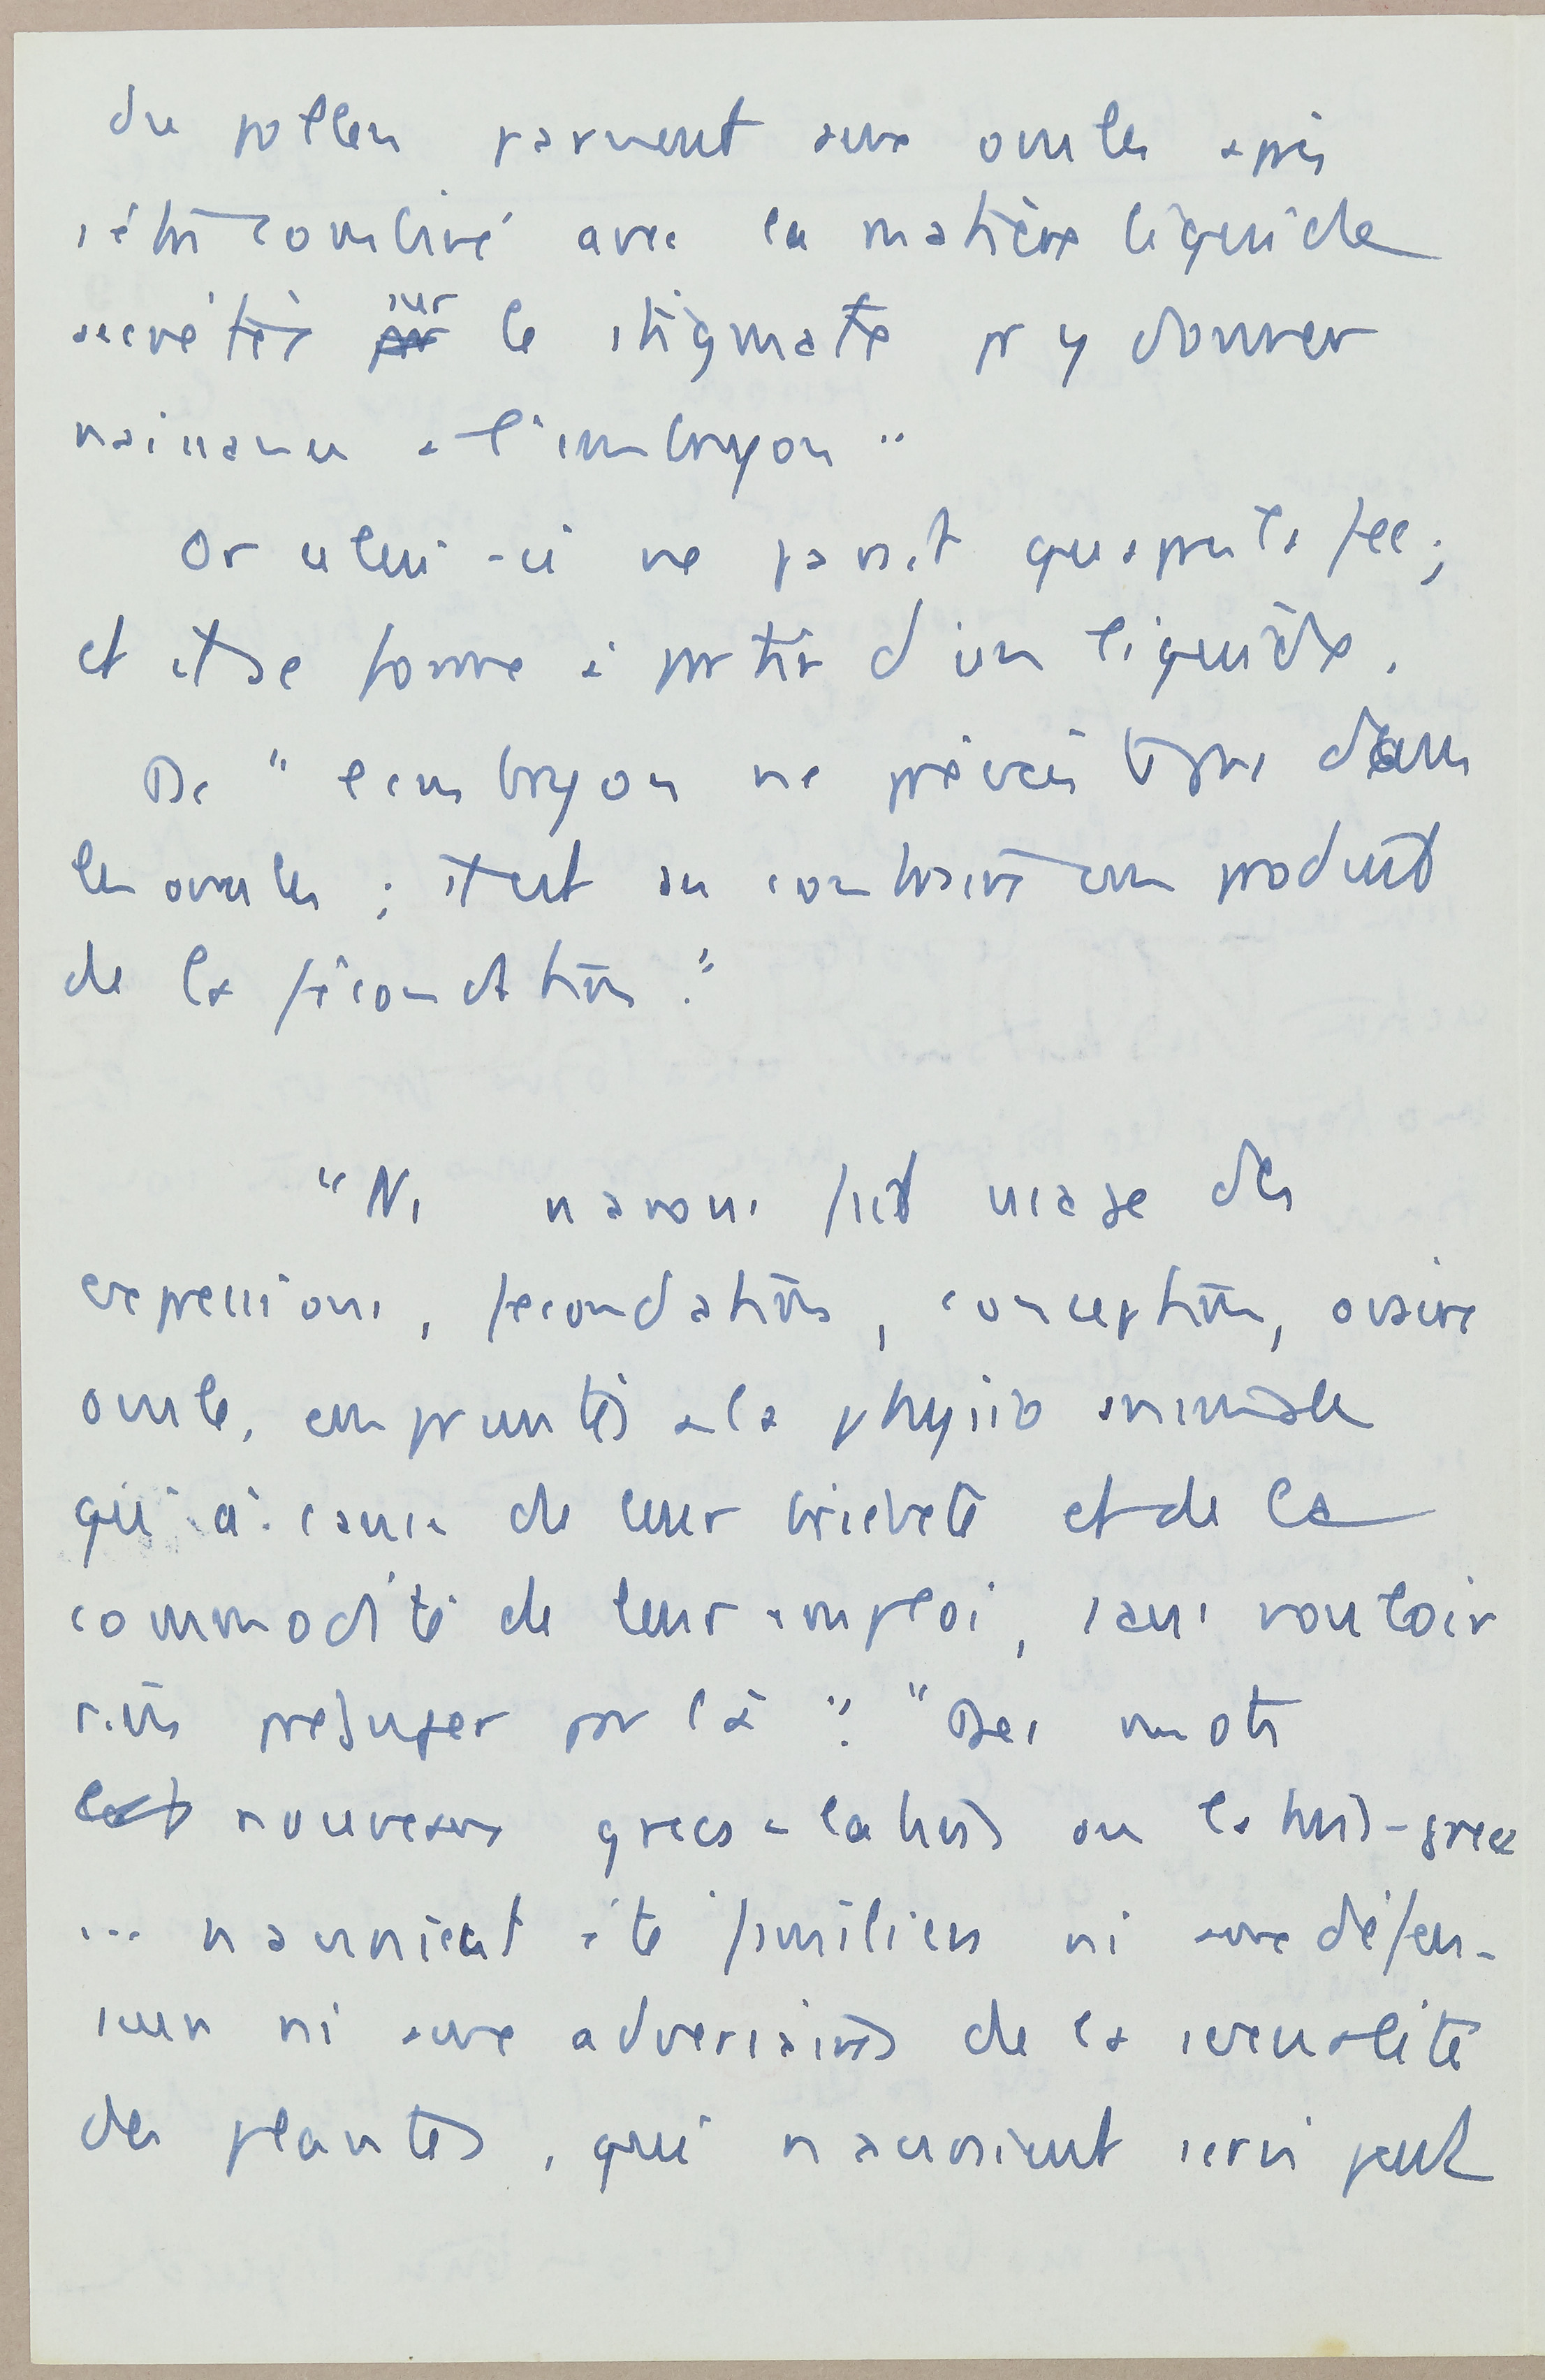 du pollen parvient aux ovules après
s'être combiné avec la matière liquide
secrétée sur le stigmate pr y donner
naissance à l'embryon"
Or celui-ci ne parait qu'après la fec;
et il se forme à partir d'un liquide.
Dc "l'embryon ne préexiste pas dans
les ovules; il est au contraire un produit
de la fécondation."
"Ns n'avons fait usage des
expressions, fecondation, conception, ovaire
ovule, empruntés à la physio animale
qu'à cause de leur brieveté et de la
commodité de leur emploi, sans vouloir
rien prejuger par là". "Des mots
nouveaux greco-latins ou latins-grecs
... n'auraient été familiers ni aux défen-
seurs ni aux adversaires de la sexualité
des plantes, qui n'auraient servi peut